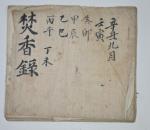 辛丑九月
壬寅
癸卯
甲辰
乙巳
丙午 丁未
焚香錄